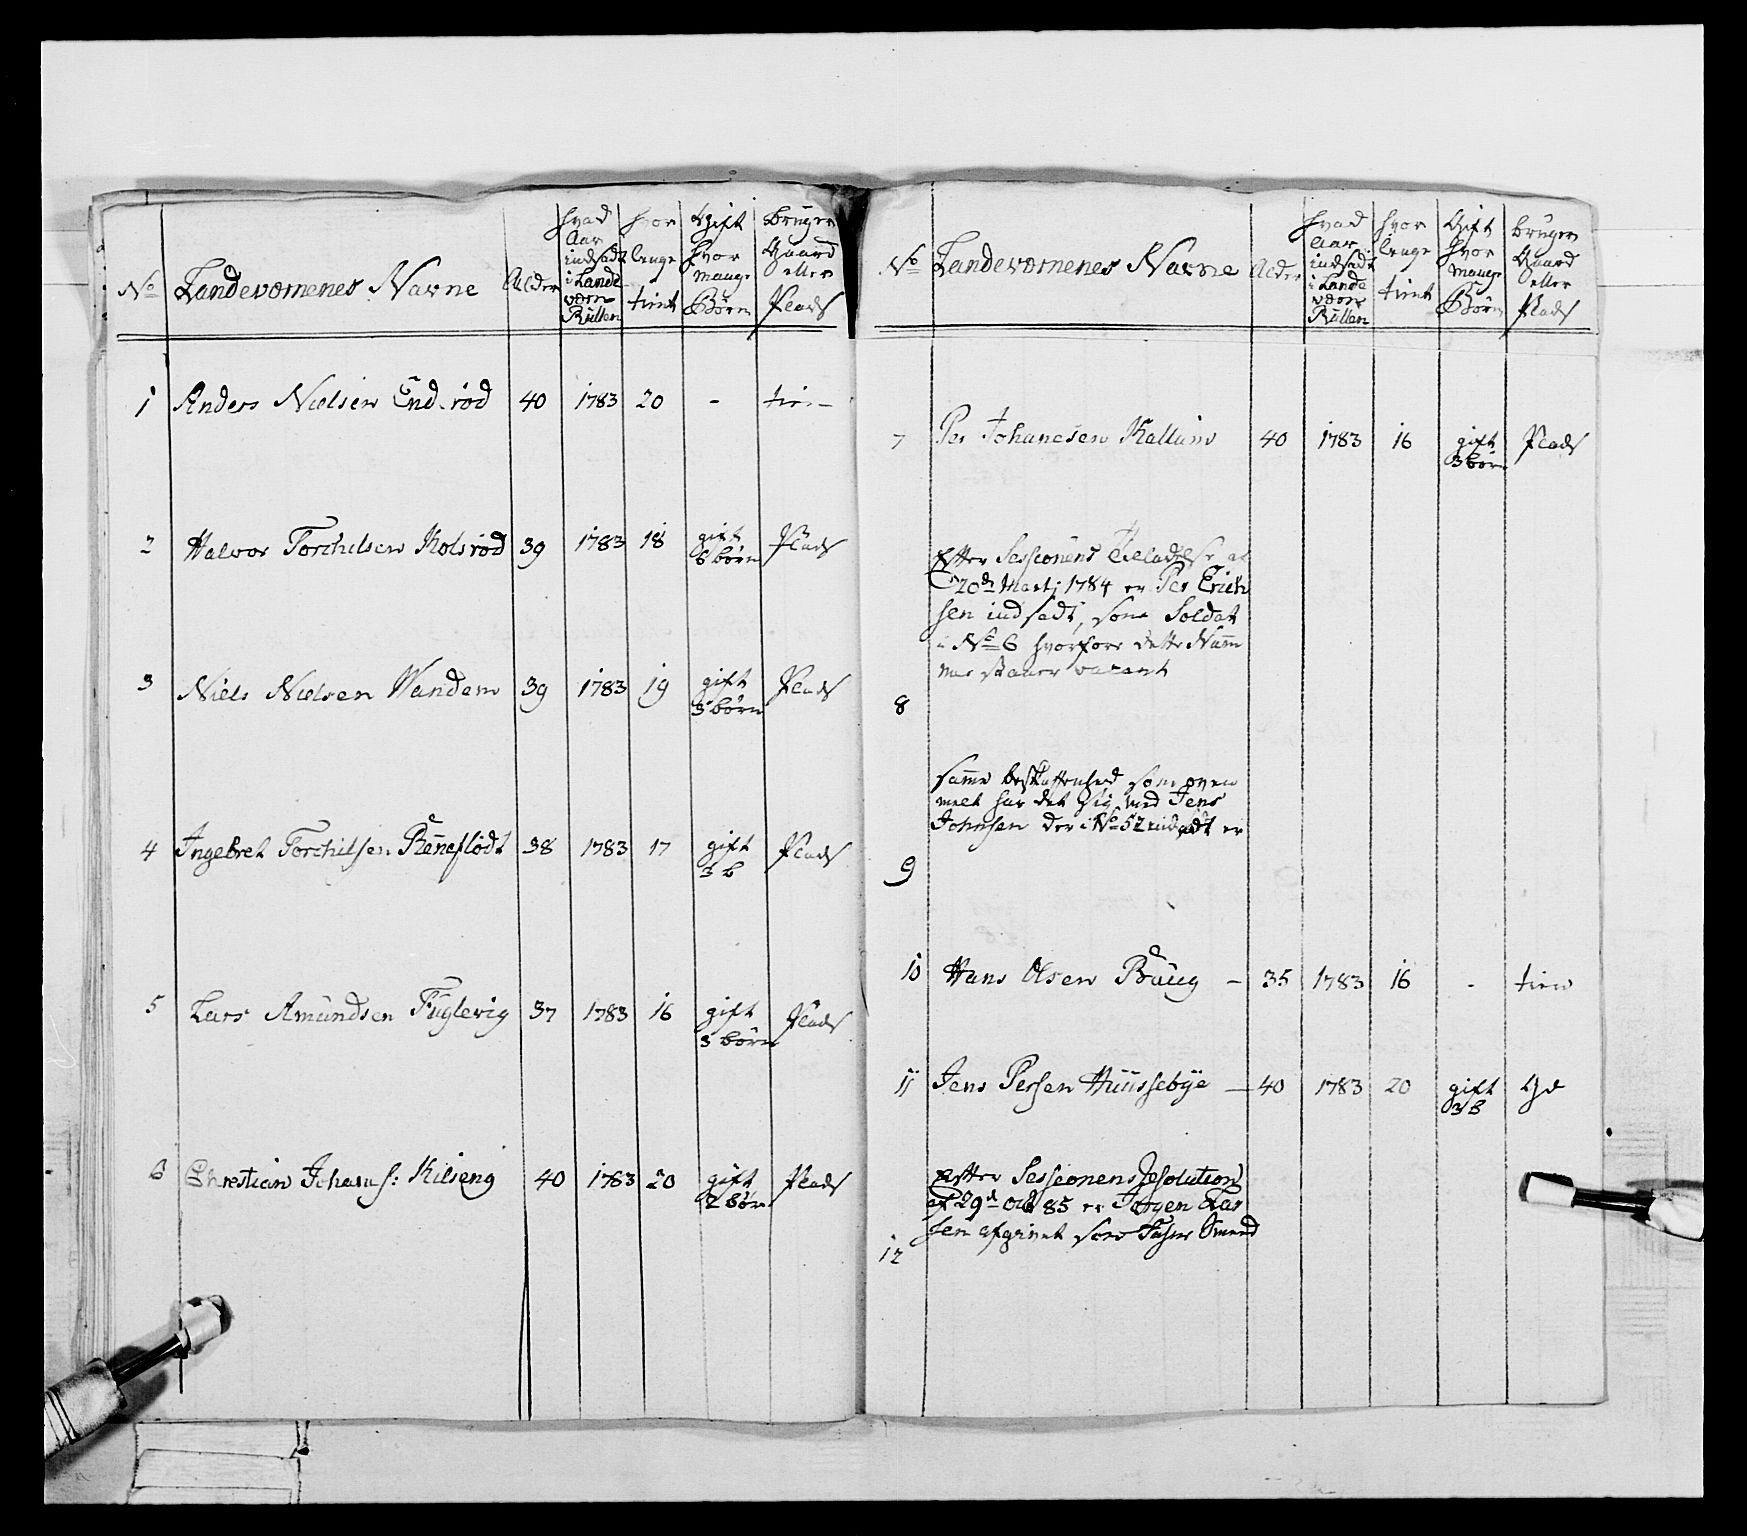 No Landeværnenes Navne Alder hvad Aar indsadt i Lande værn Rullen hvor lenge tient Gift hvor mange Børn bruger Gaard eller Plads
1 Anders Nielsen End rød 40 1783 20 - tien
2 Halvor Torchilsen Kolsrød 39 1783 18 gift 6 børn Plads
3 Niels Nielsen Wandem 39 1783 19 gift 3 børn Plads
4 Ingebret Torchilsen Rønneflødt 38 1783 17 gift 3 b Plads
5 Lars Amundsen Fuglevig 37 1783 16 gift 3 børn Plads
6 Christian Johans: Kilseng 40 1783 20 gift 2 bør Plads
No Landeværnenes Navne Alder hvad Aar indsadt i Lande værn Rullen hvor lenge tient Gift hvor mange Børn bruger Gaard eller Plads
7 Per Johanesen Kallum 40 1783 16 gift 3 børn Plads
Efter Sessionens Tilladelse af
20de Martj 1784 er Per Erich
sen indsadt, som Soldat
i No 6 hvorfore dette Num
mer staaer vacant
8
samme beskaffenhed som oven
melt har det sig med Jens
Johnsen der i No 52 indsadt er
9
10 Hans Olsen Baug - 35 1783 16 - tien
11 Jens Persen Huusebye - 40 1783 20 gift 3 b Gd
Efter Sessionens Resolution
af 29d Oct 85 er Jørgen Lar
sen afgivet som
12